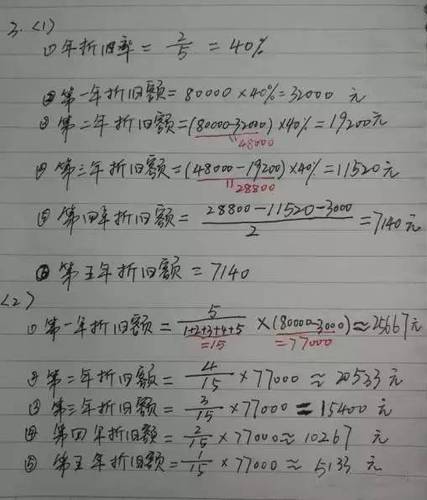 3. (1)
① 年折旧率 = 2/5 = 40%
② 第一年折旧额 = 80000 × 40% = 32000 元
③ 第二年折旧额 = (80000-32000) × 40% = 19200元
48000
④ 第三年折旧额 = (48000-19200) × 40% = 11520元
28800
⑤ 第四年折旧额 = (28800-11520-3000)/2 = 7140元
⑥ 第五年折旧额 = 7140
(2)
① 第一年折旧额 = 5/(1+2+3+4+5) × (80000-3000) ≈ 25667元
=15 =77000
② 第二年折旧额 = 4/15 × 77000 ≈ 20533 元
③ 第三年折旧额 = 3/15 × 77000 = 15400 元
④ 第四年折旧额 = 2/15 × 77000 ≈ 10267 元
⑤ 第五年折旧额 = 1/15 × 77000 ≈ 5133 元